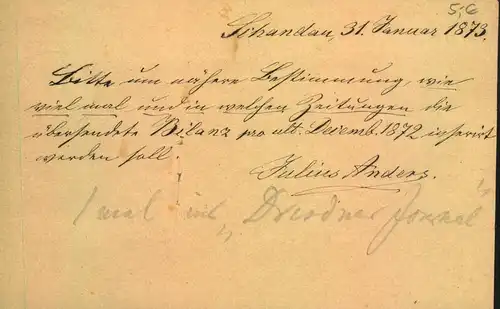 5,6
Schandau, 31. Januar 1873.
Bitte um nähere Bestimmung, wie
viel mal und in welchen Zeitungen die
übersendete Bilanz pro ult. Decemb. 1872 inserirt
werden soll.
Julius Anders.
1 mal ins „Dresdner Journal“